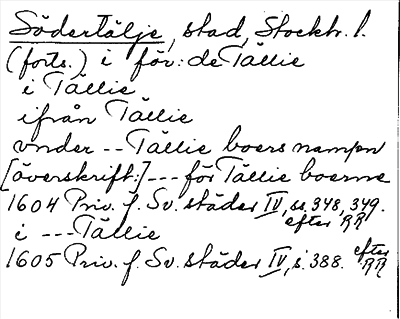 Södertälje, stad, Stockh. l.
(forts.) i för: de Tällie
i Tällie
ifrån Tällie
vnder -- Tällie boers nampn
[överskrift:] --- för Tällie boerne
1604 Priv. f. Sv. städer IV, ss. 348, 349.
efter RR
i --- Tällie
1605 Priv. f. Sv. städer IV, s. 388. efter RR